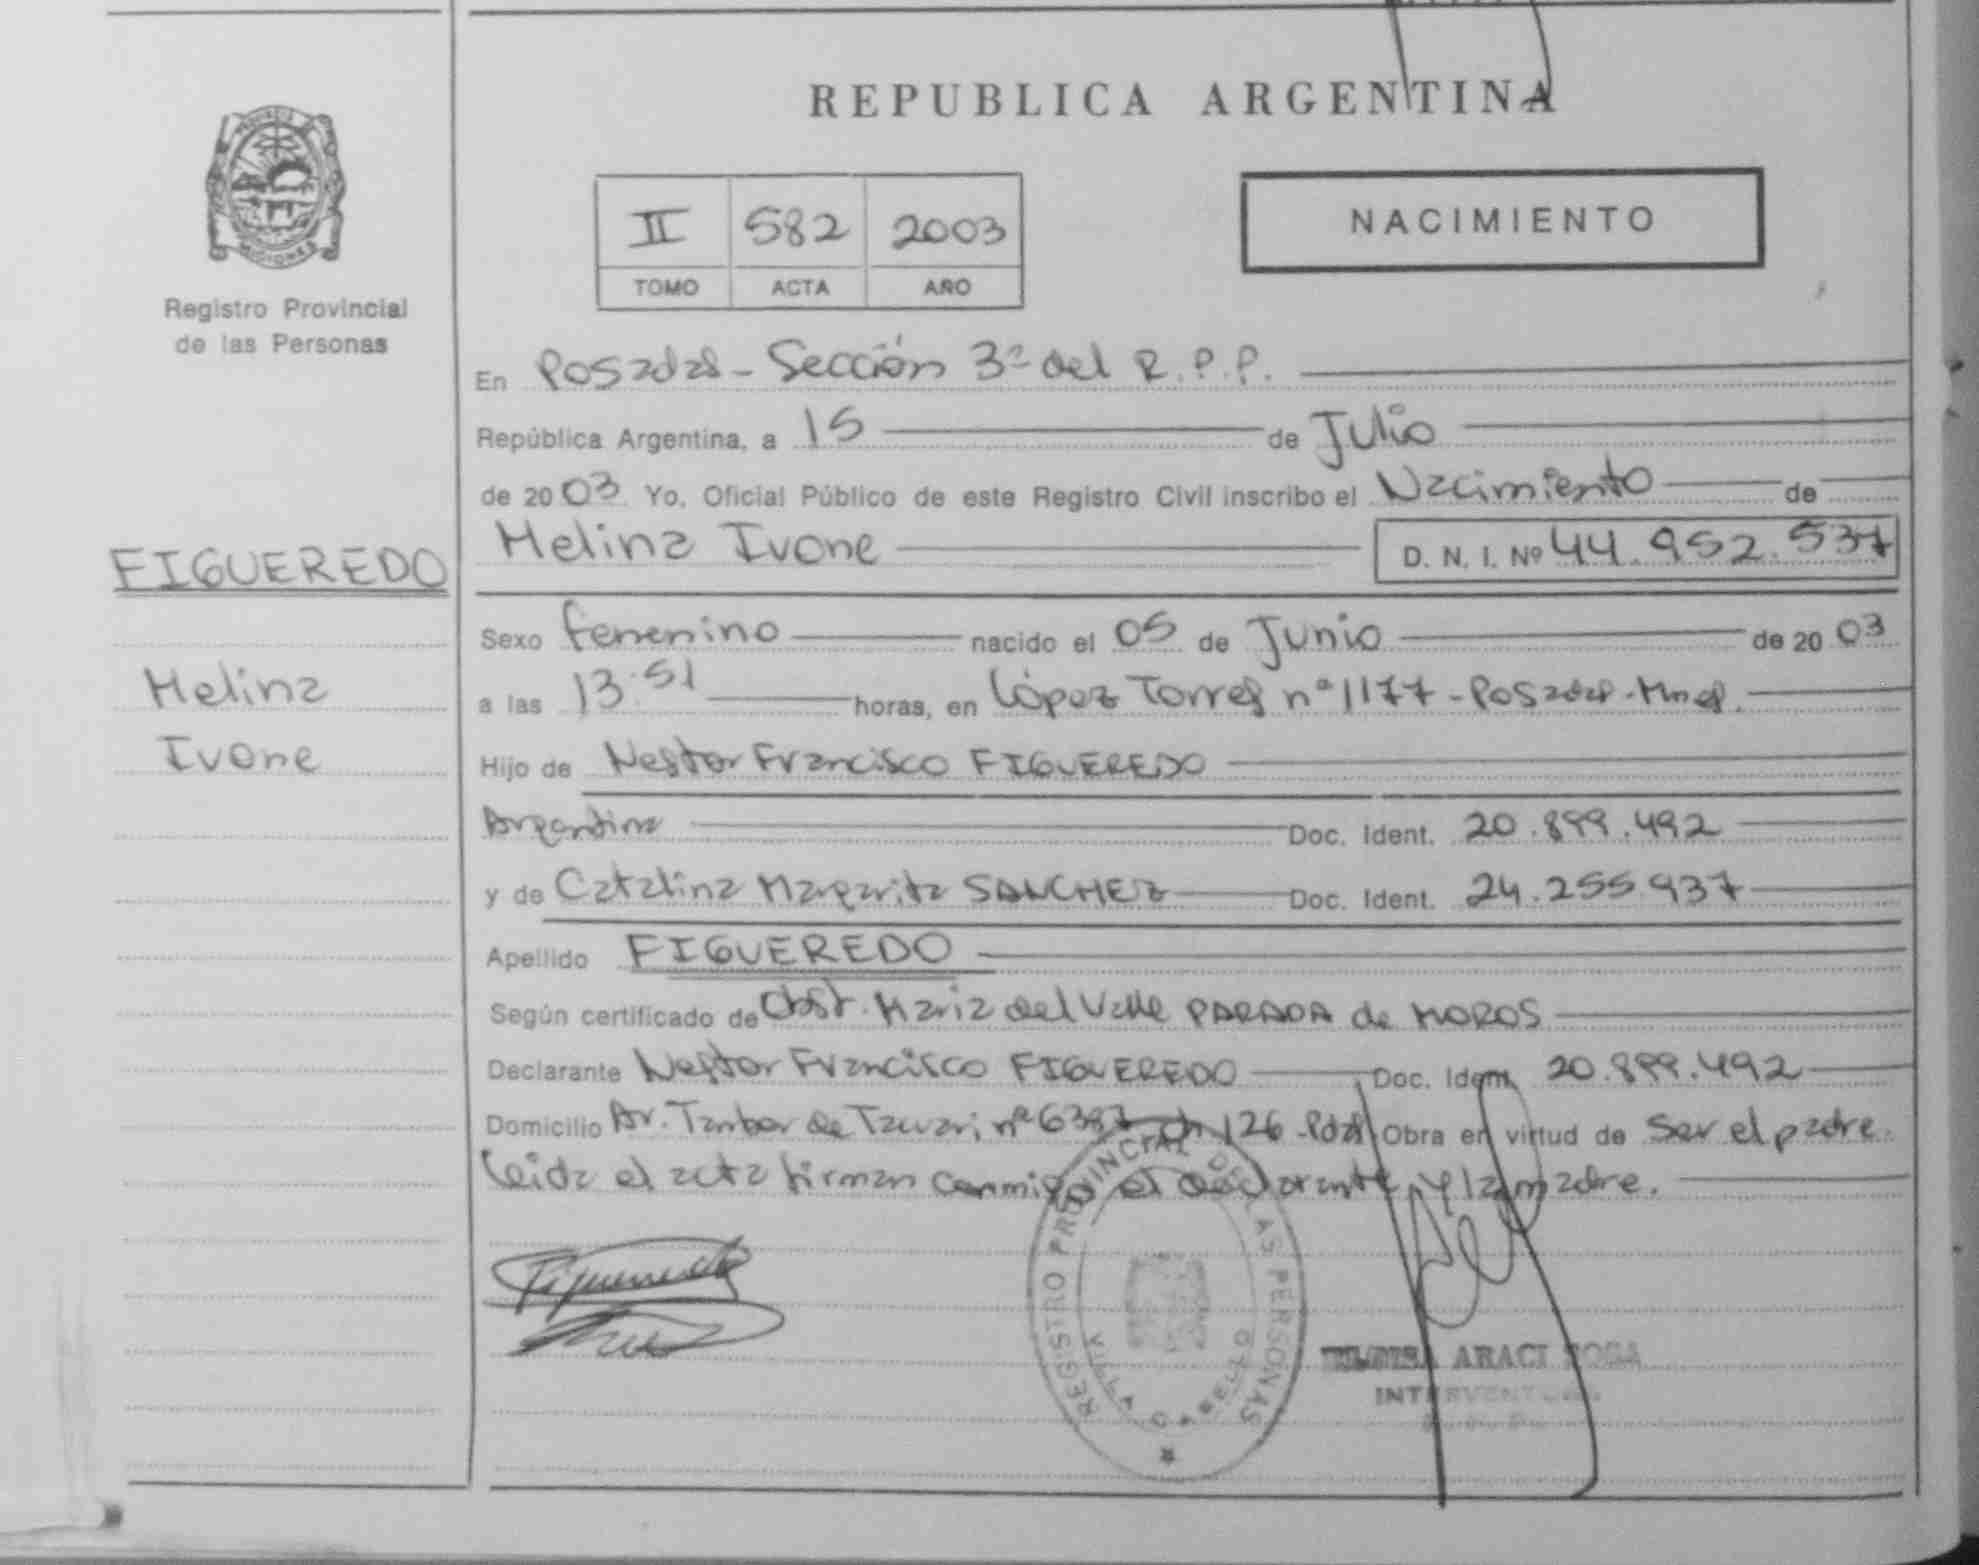 REPUBLICA ARGENTINA
II 582 2003
TOMO ACTA AÑO
NACIMIENTO
MISIONES
Registro Provincial
de las Personas
FIGUEREDO
Melina
Ivone
En Posadas - Sección 3ª del R.P.P.
República Argentina, a 15 de Julio
de 2003 Yo, Oficial Público de este Registro Civil inscribo el Nacimiento de
Melina Ivone D. N. I. Nº 44.952.537
Sexo femenino nacido el 05 de Junio de 2003
a las 13:51 horas, en López Torres nº 1177 - Posadas - Mnes.
Hijo de Nestor Francisco FIGUEREDO
Argentina Doc. Ident. 20.899.492
y de Catalina Margarita SANCHEZ Doc. Ident. 24.255.937
Apellido FIGUEREDO
Según certificado de Obst. Maria del Valle PARADA de MOROS
Declarante Nestor Francisco FIGUEREDO Doc. Ident. 20.899.492
Domicilio Av. Tambor de Tacuari nº 126 - Pdas Obra en virtud de Ser el padre.
leida el acta firman conmigo el declarante y la madre.
Figueredo
REGISTRO PROVINCIAL DE LAS PERSONAS
VILLA CABELLO
ARACI
INTERVENTORA